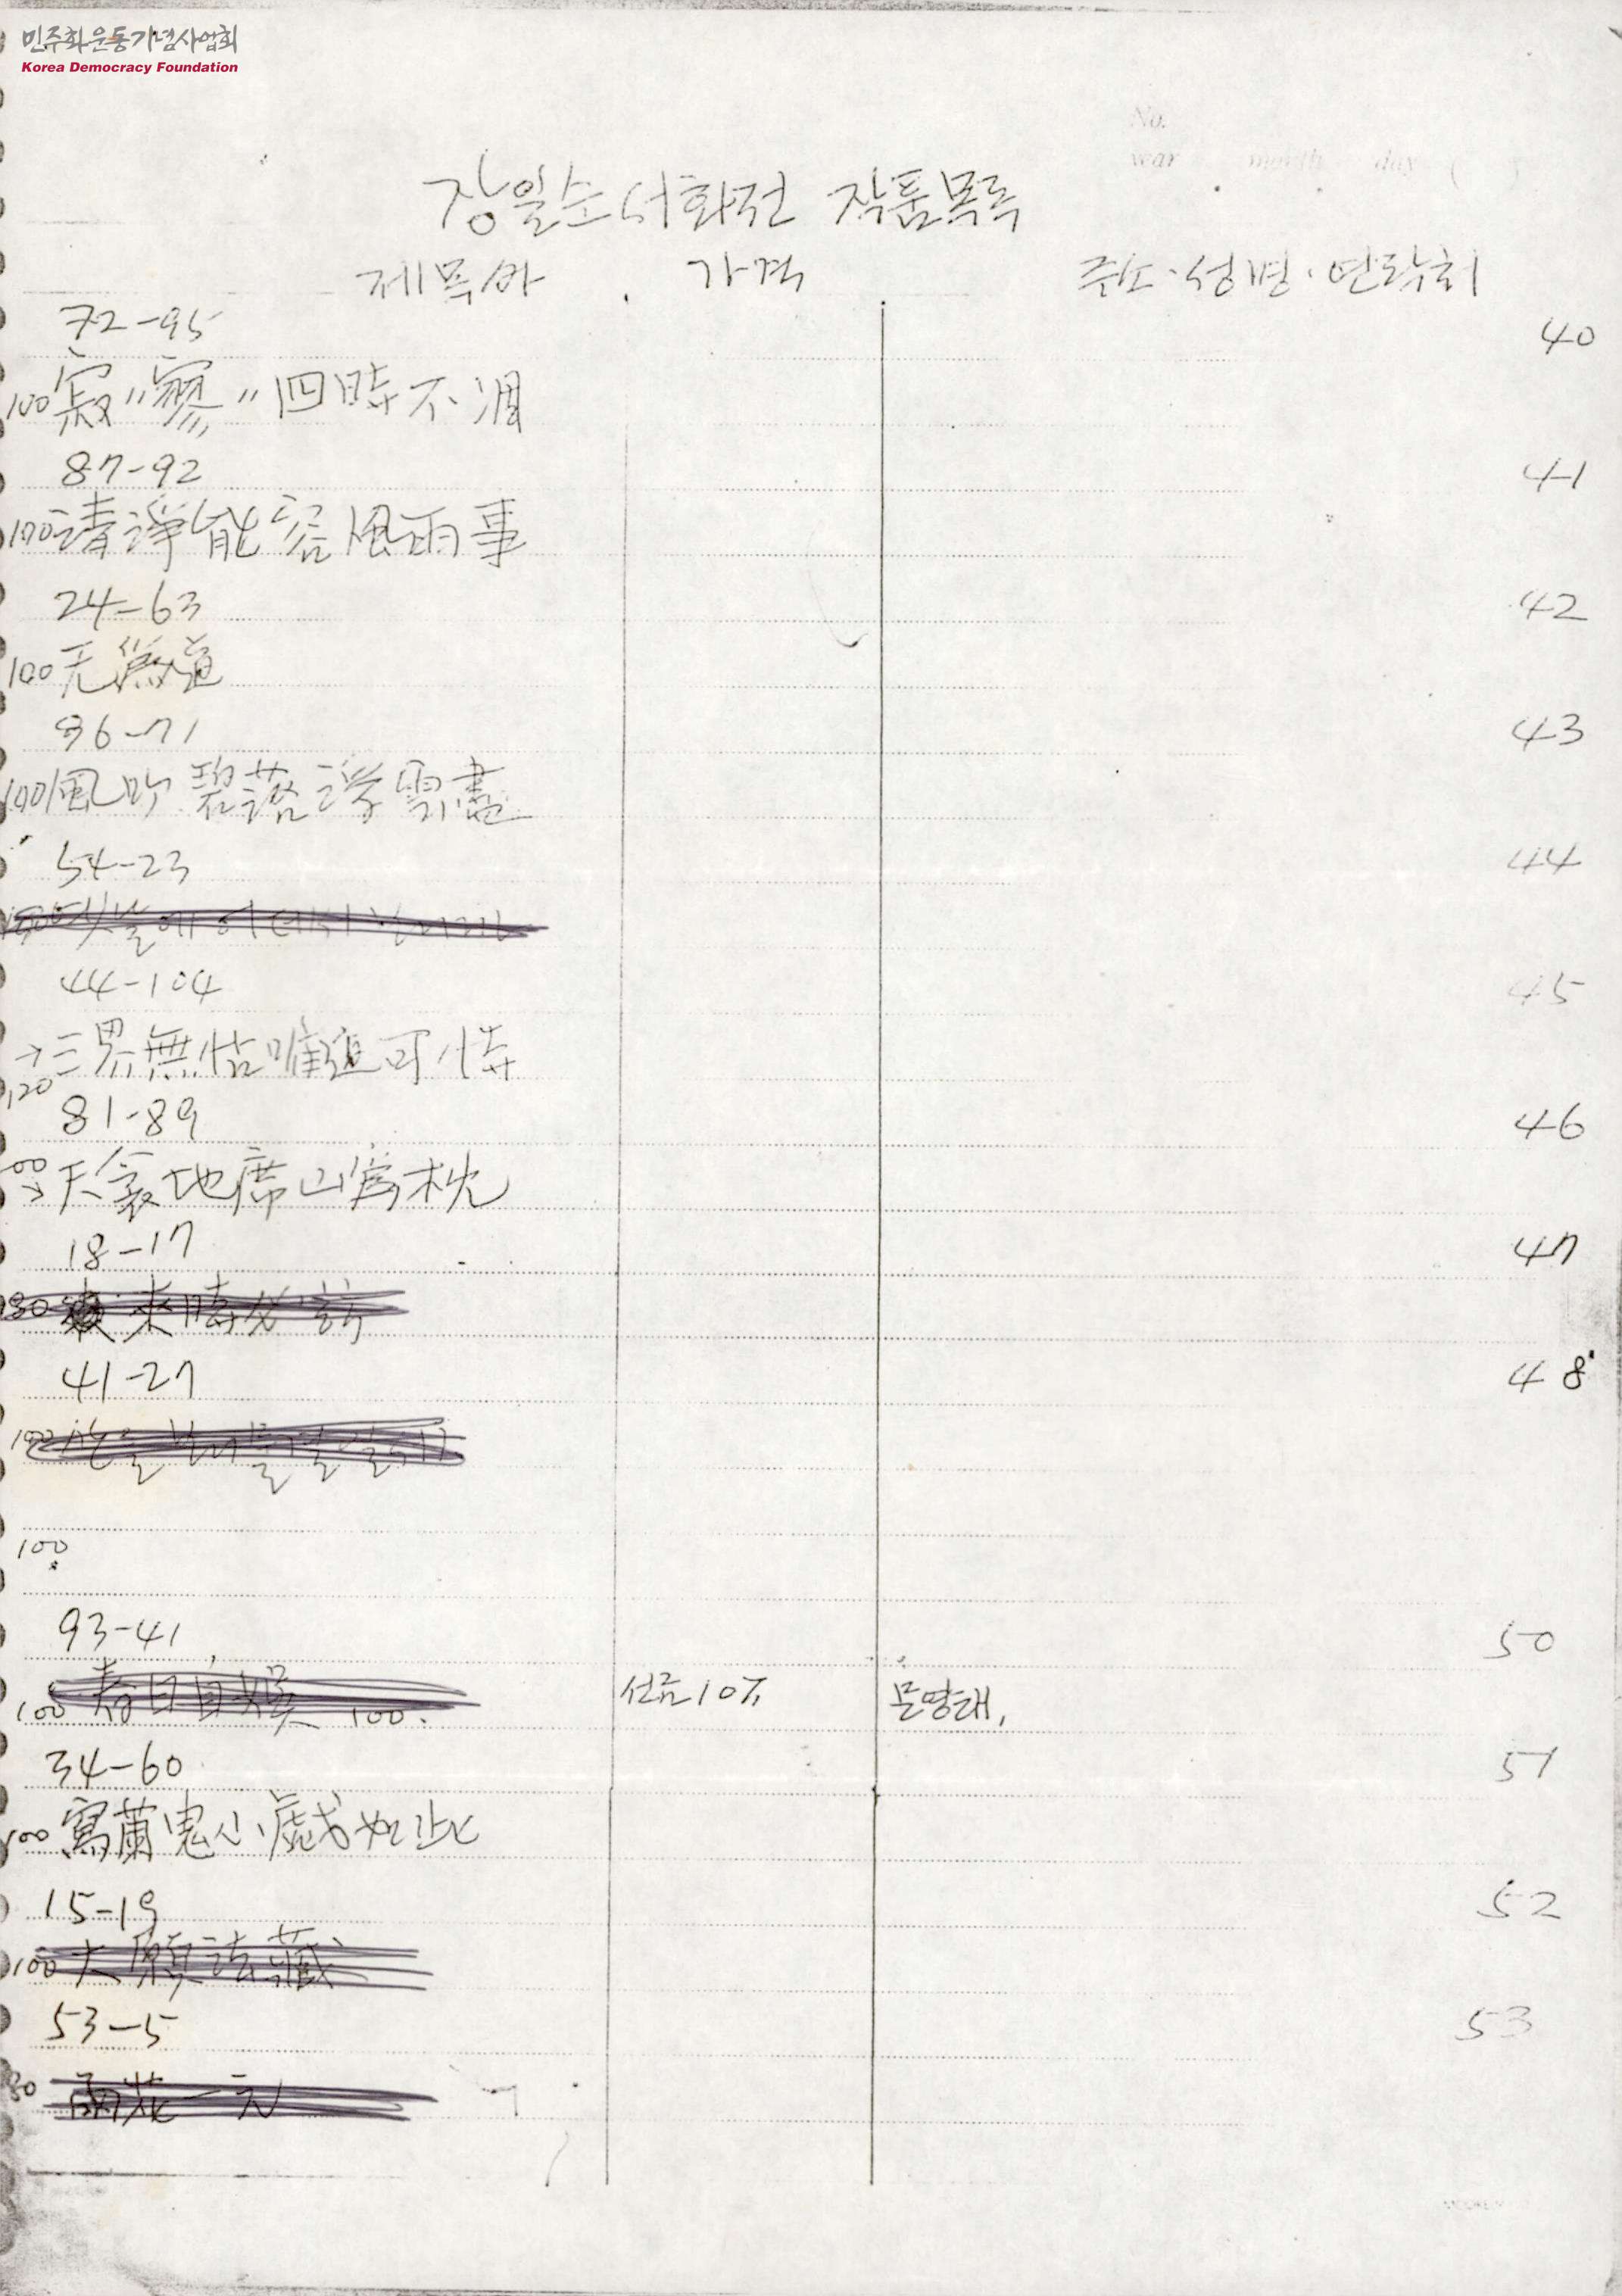 민주화운동기념사업회
Korea Democracy Foundation
No.
year month day ( )
장일순 서화전 작품목록
제목 가격 주소·성명·연락처
72-95 40
100 寂〃寥〃四時不凋
87-92 41
100 請淨能容風雨事
24-63 42
100 无爲道
96-71 43
100 風吹碧落浮雲盡
54-23 44
44-104 45
→三界無怙唯道可恃
120
81-89 46
00 天衾地席山爲枕
→
18-17 47
80 來時
41-27 48
100
100
93-41 50
100 春日自娛 100. 선금10% 문영래,
34-60 51
100 寫蘭鬼小戱如此
15-19 52
100 大願法藏
53-5 53
80 雨花一